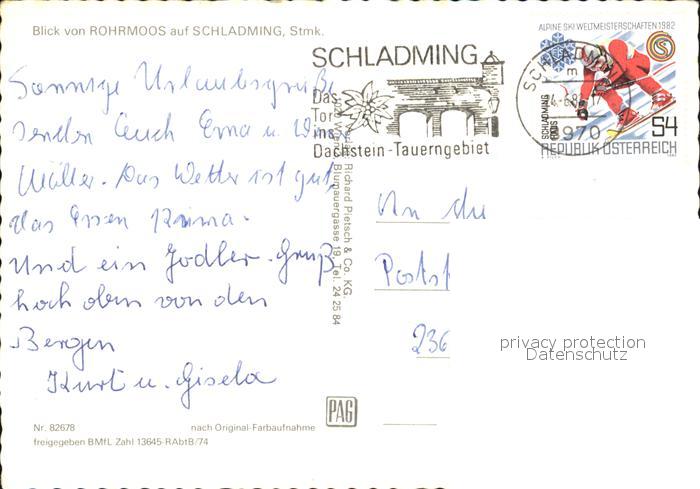 Blick von ROHRMOOS auf SCHLADMING, Stmk.
Sonnige Urlaubsgrüße
senden Euch Erna u.
Müller. Das Wetter ist gut
das Essen Prima.
Und ein Jodler-Gruß
hoch oben von den
Bergen
Kurt u. Gisela
Nr. 82678 nach Original-Farbaufnahme
freigegeben BMfL Zahl 13645-RAbtB/74
SCHLADMING
Das
Tor
ins
Dachstein-Tauerngebiet
ALPINE SKI WELTMEISTERSCHAFTEN 1982
SCHLADMING
S4
REPUBLIK ÖSTERREICH
SCHLADMING
1970
Richard Pietsch & Co. KG.
Blumauergasse 19, Tel. 24 25 84
PAG
An die
Postst
236
privacy protection
Datenschutz